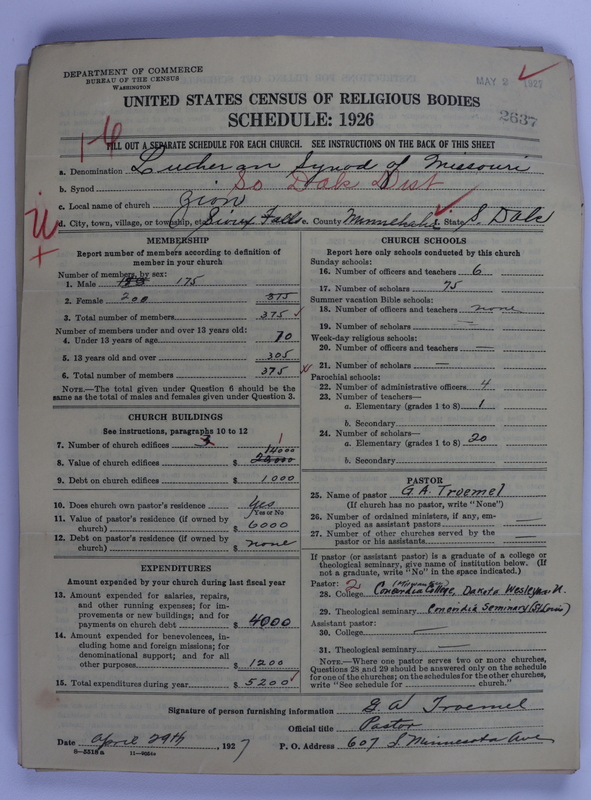 DEPARTMENT OF COMMERCE
BUREAU OF THE CENSUS
WASHINGTON
MAY 2 1927
UNITED STATES CENSUS OF RELIGIOUS BODIES
SCHEDULE: 1926
2637
FILL OUT A SEPARATE SCHEDULE FOR EACH CHURCH. SEE INSTRUCTIONS ON THE BACK OF THIS SHEET
a. Denomination Lutheran Synod of Missouri
b. Synod So Dak Dist
c. Local name of church Zion
d. City, town, village, or township, etc Sioux Falls e. County Minnehaha f. State S. Dak
MEMBERSHIP
Report number of members according to definition of
member in your church
Number of members, by sex:
1. Male 175
2. Female 200 375
3. Total number of members 375
Number of members under and over 13 years old:
4. Under 13 years of age 70
5. 13 years old and over 305
6. Total number of members 375
NOTE.—The total given under Question 6 should be the
same as the total of males and females given under Question 3.
CHURCH BUILDINGS
See instructions, paragraphs 10 to 12
7. Number of church edifices 3 1
14000
8. Value of church edifices $ 20,000
9. Debt on church edifices $ 1000
10. Does church own pastor's residence Yes
Yes or No
11. Value of pastor's residence (if owned by
church) $ 6000
12. Debt on pastor's residence (if owned by
church) $ none
EXPENDITURES
Amount expended by your church during last fiscal year
13. Amount expended for salaries, repairs,
and other running expenses; for im-
provements or new buildings; and for
payments on church debt $ 4000
14. Amount expended for benevolences, in-
cluding home and foreign missions; for
denominational support; and for all
other purposes $ 1200
15. Total expenditures during year $ 5200
CHURCH SCHOOLS
Report here only schools conducted by this church
Sunday schools:
16. Number of officers and teachers 6
17. Number of scholars 75
Summer vacation Bible schools:
18. Number of officers and teachers none
19. Number of scholars —
Week-day religious schools:
20. Number of officers and teachers —
21. Number of scholars —
Parochial schools:
22. Number of administrative officers 4
23. Number of teachers—
a. Elementary (grades 1 to 8) 1
b. Secondary
24. Number of scholars—
a. Elementary (grades 1 to 8) 20
b. Secondary
PASTOR
25. Name of pastor G. A. Troemel
(If church has no pastor, write "None")
26. Number of ordained ministers, if any, em-
ployed as assistant pastors —
27. Number of other churches served by the
pastor or his assistants —
If pastor (or assistant pastor) is a graduate of a college or
theological seminary, give name of institution below. (If
not a graduate, write "No" in the space indicated.)
Pastor: 2
28. College Concordia College, Dakota Wesleyan U.
29. Theological seminary Concordia Seminary (St Louis)
Assistant pastor:
30. College —
31. Theological seminary —
NOTE.—Where one pastor serves two or more churches,
Questions 28 and 29 should be answered only on the schedule
for one of the churches; on the schedules for the other churches,
write "See schedule for church."
Signature of person furnishing information G. A Troemel
Official title Pastor
Date April 29th, 1927 P. O. Address 607 S. Minnesota Ave
8-5518a 11-9054a